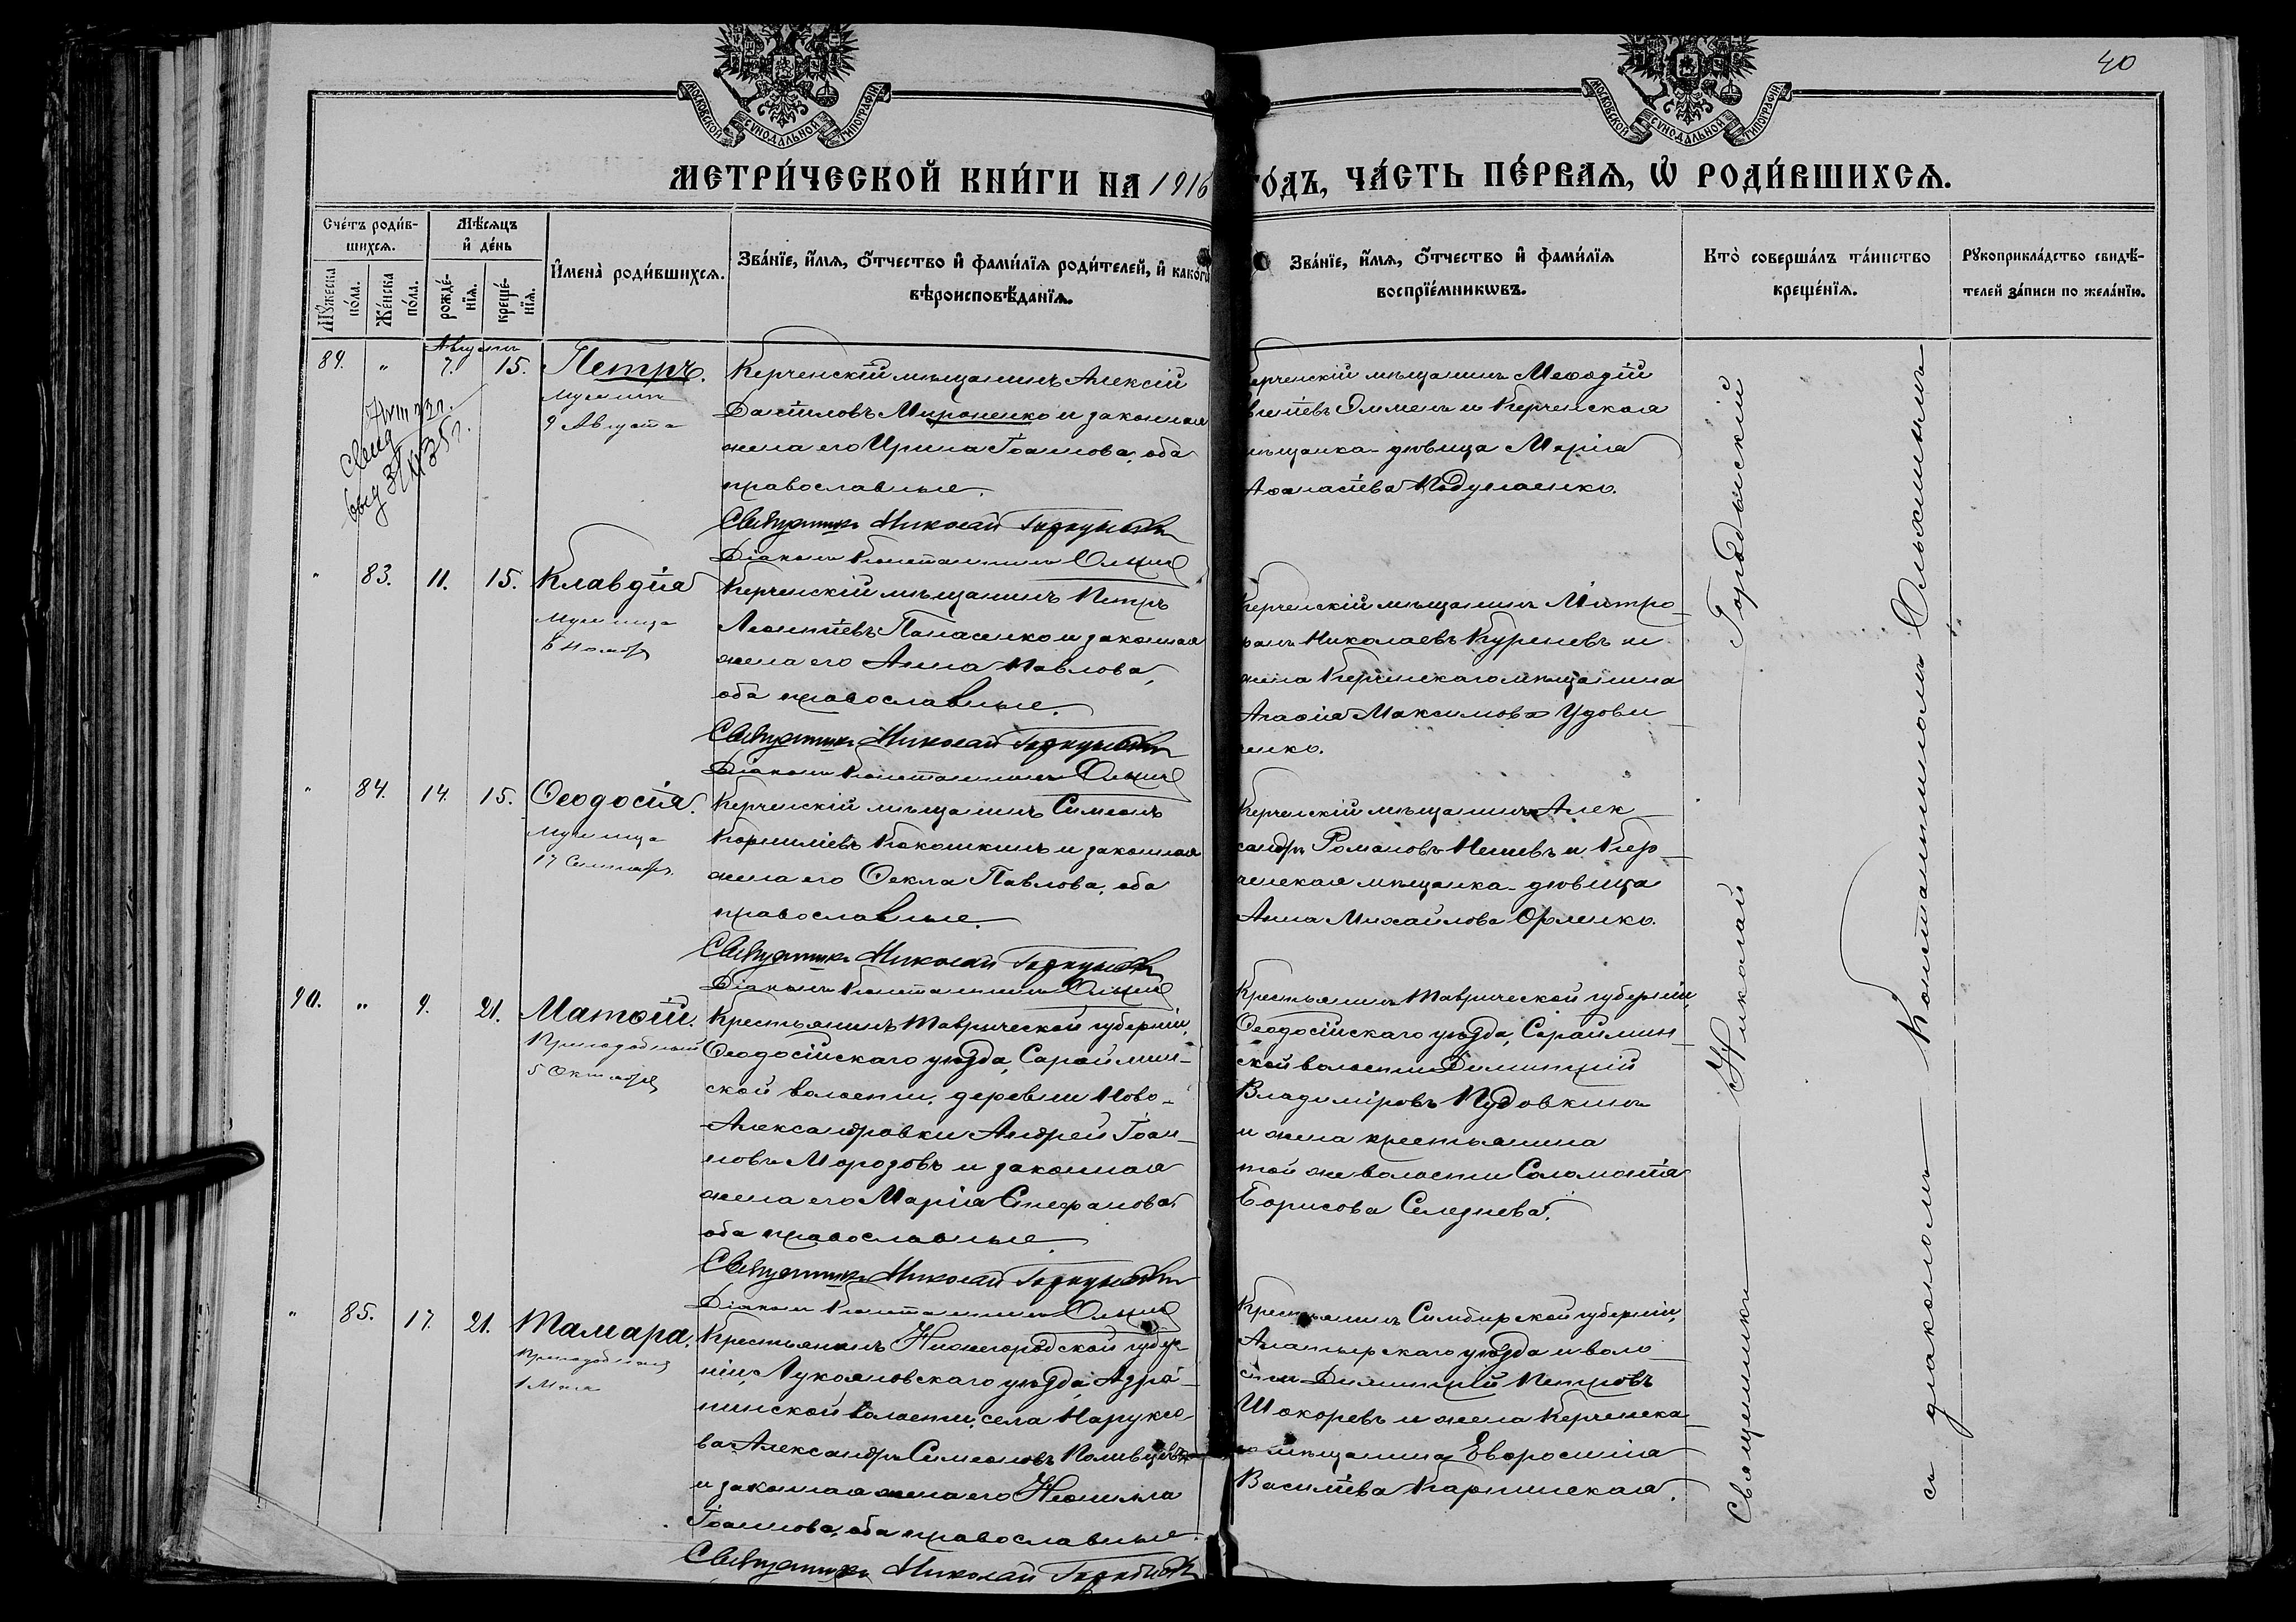 40
МОСКОВСКОЙ СѴНОДАЛЬНОЙ ТИПОГРАФІИ
МОСКОВСКОЙ СѴНОДАЛЬНОЙ ТИПОГРАФІИ
МЕТРИ́ЧЕСКОЙ КНИ́ГИ НА 1916 ГО́ДЪ, ЧА́СТЬ ПЕ́РВАЯ, Ѡ҆ РОДИ́ВШИХСЯ.
Сче́тъ роди́в-
шихся.
Мѣ́сяцъ
и҆ де́нь
Мꙋ́жеска
по́ла.
Же́нска
по́ла.
рожде́-
нїя.
креще́-
нїя.
И҆мена̀ роди́вшихся.
Зва́нїе, и҆́мя, ѻ҆́тчество и҆ фами́лїя роди́телей, и҆ како́гѡ
вѣроисповѣ́данїя.
Зва́нїе, и҆́мя, ѻ҆́тчество и҆ фами́лїя
воспрїе́мникѡвъ.
Кто̀ соверша́лъ та́инство
креще́нїя.
Рꙋкоприкла́дство свидѣ́-
телей за́писи по жела́нїю.
89. „ Августъ 7. 15. Петръ.
Мученикъ
9 Августа
Керченскій мѣщанинъ Алексій
Даніиловъ Мироненко и законная
жена его Ирина Іоаннова, оба
православные.
Священникъ Николай
Діаконъ Константинъ
Керченскій мѣщанинъ Меѳодій
и Керченская
мѣщанка-дѣвица Марія
Аѳанасіева
„ 83. 11. 15. Клавдія
Мученица
6 Ноября
Керченскій мѣщанинъ Петръ
Леонтіевъ Панасенко и законная
жена его Анна Павлова,
оба православные.
Священникъ Николай
Діаконъ Константинъ
Керченскій мѣщанинъ Митро-
фанъ Николаевъ Куреневъ и
жена Керченскаго мѣщанина
Агаѳія Максимова Удови-
ченко.
„ 84. 14. 15. Ѳеодосія.
Мученица
17 Сентября
Керченскій мѣщанинъ Симеонъ
Корниліевъ Кокошкинъ и законная
жена его Ѳекла Павлова, оба
православные.
Священникъ Николай
Діаконъ Константинъ
Керченскій мѣщанинъ Алек-
сандръ Романовъ и Кер-
ченская мѣщанка-дѣвица
Анна Михайлова Орленко.
90. „ 9. 21. Матѳій.
Преподобный
5 Октября
Крестьянинъ Таврической губерніи,
Ѳеодосійскаго уѣзда, Сараймин-
ской волости, деревни Ново-
Александровки Андрей Іоан-
новъ Морозовъ и законная
жена его Марія Стефанова,
оба православные.
Священникъ Николай
Діаконъ Константинъ
Крестьянинъ Таврической губерніи,
Ѳеодосійскаго уѣзда, Сараймин-
ской волости Димитрій
Владиміровъ Пудовкинъ
и жена крестьянина
той же волости Соломонія
Борисова Селезнева.
„ 85. 17. 21. Тамара.
Преподобная
1 Мая
Крестьянинъ Нижегородской губер-
ніи, Лукояновскаго уѣзда,
волости, села Наруксо-
ва Александръ Симеоновъ
и законная жена его Неонилла
Іоаннова, оба православные.
Священникъ Николай
Крестьянинъ Симбирской губерніи,
Алатырскаго уѣзда и воло-
сти Димитрій Петровъ
Шокоревъ и жена Керченска-
го мѣщанина Евфросинія
Василіева Карпинская.
Священникъ Николай
съ діакономъ Константиномъ